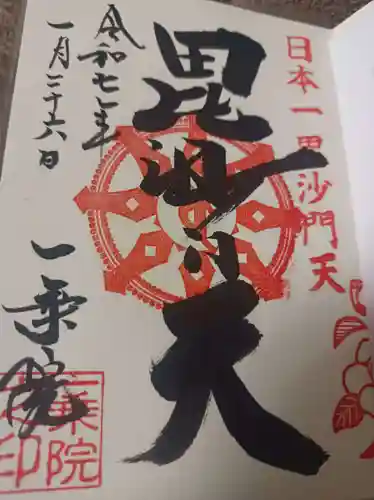 日本一毘沙門天
毘沙門天
令和七年
一月二十六日
一乗院
一乗院
印